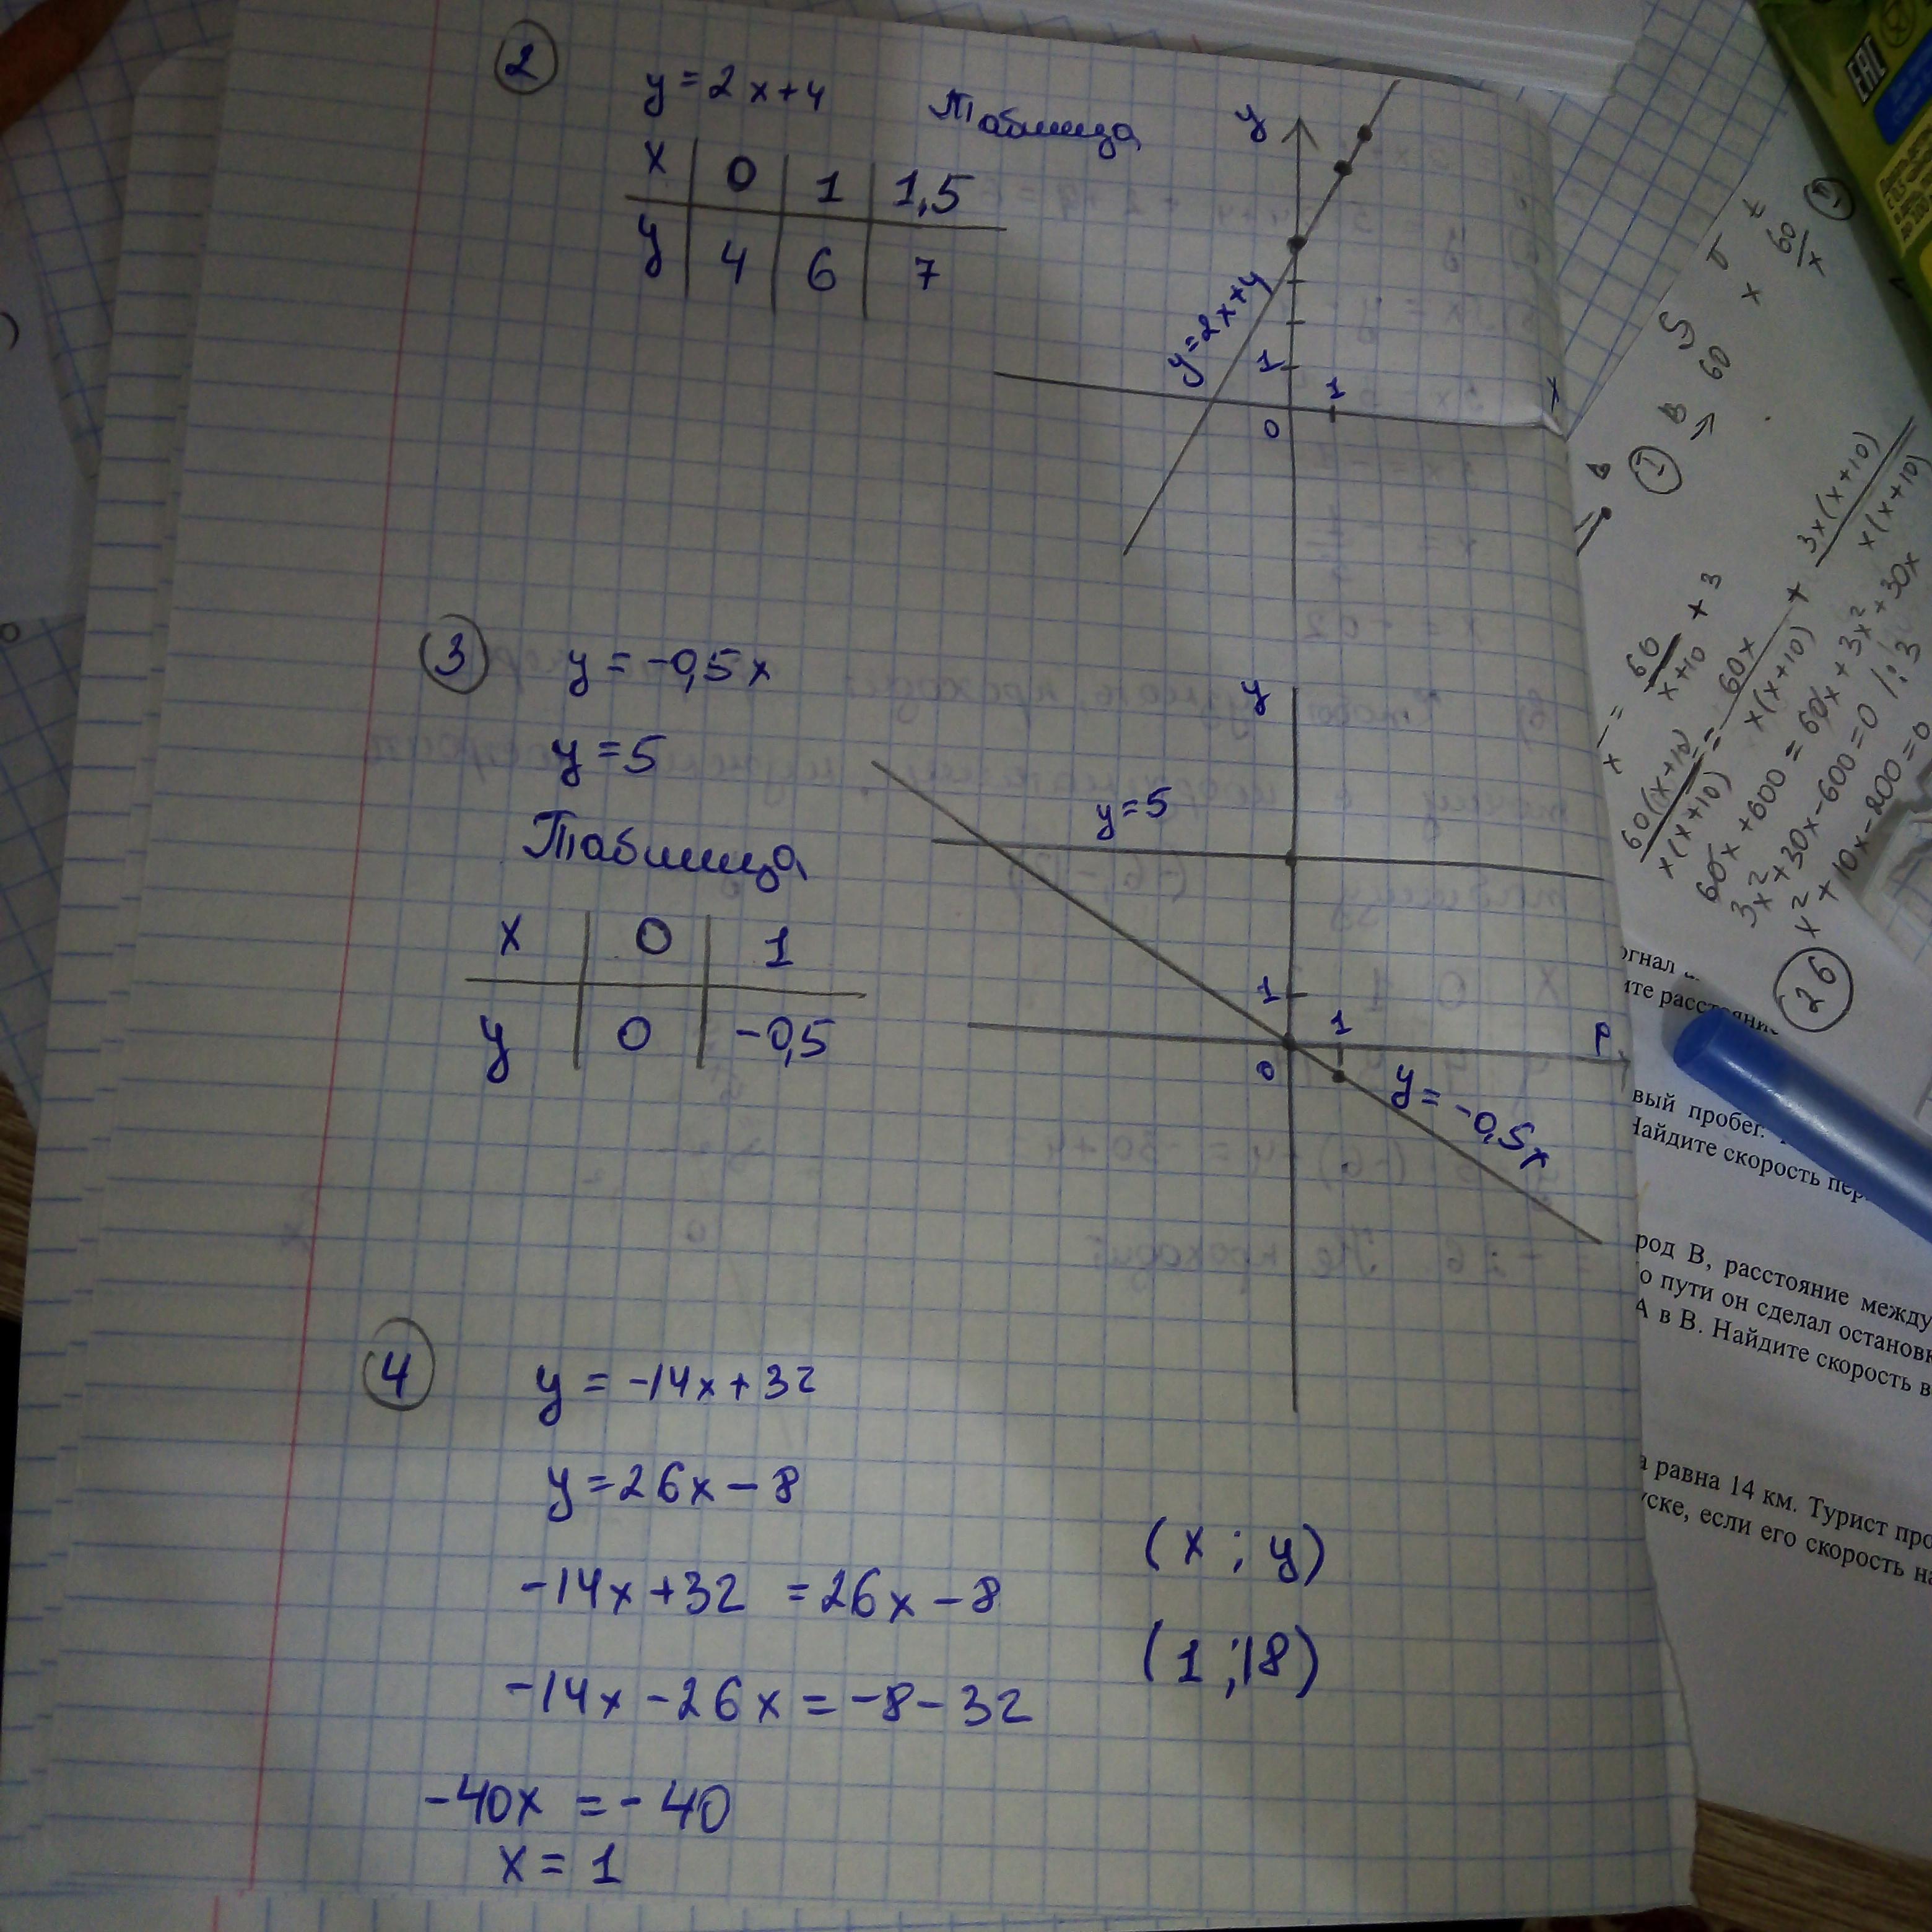 2
y = 2x+4 Таблица
x 0 1 1,5
y 4 6 7
y
x
y=2x+4
1
1
0
3
y = -0,5x
y = 5
Таблица
x 0 1
y 0 -0,5
y
y=5
1
1
0
y = -0,5x
4
y = -14x+32
y = 26x-8
-14x+32 = 26x-8
-14x-26x = -8-32
-40x = -40
x = 1
(x ; y)
(1 ; 18)
ЕАС
60/x
60
= 60/(x+10) + 3
60(x+10)/x(x+10) = 60x/x(x+10) + 3x(x+10)/x(x+10)
60x+600 = 60x+3x²+30x
3x²+30x-600=0 |:3
x²+10x-200=0
26
пробег.
Найдите скорость
В, расстояние между
пути он сделал
А в В. Найдите скорость
равна 14 км. Турист
если его скорость